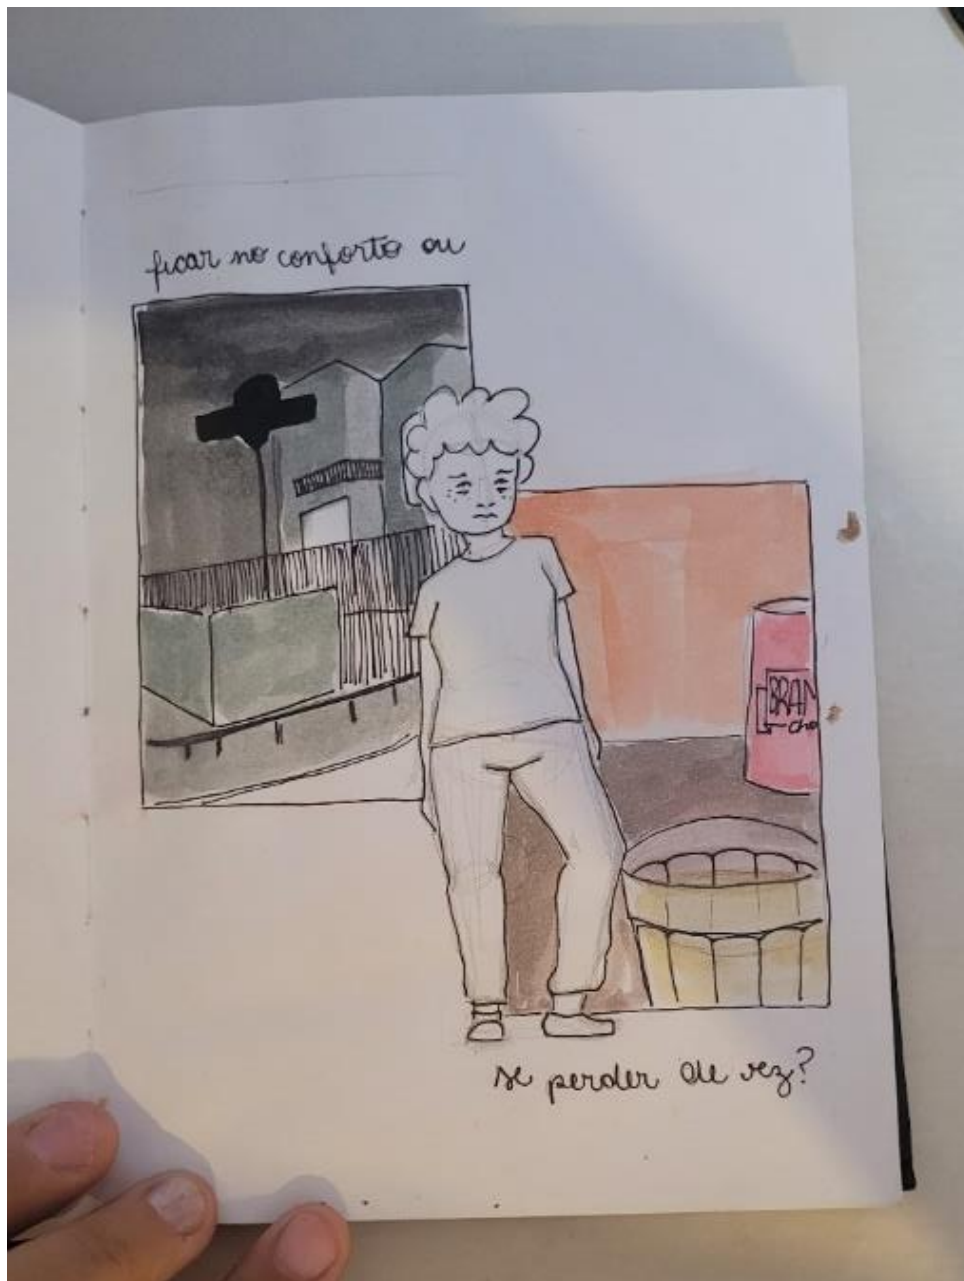 ficar no conforto ou
BRAN
cho
se perder de vez?